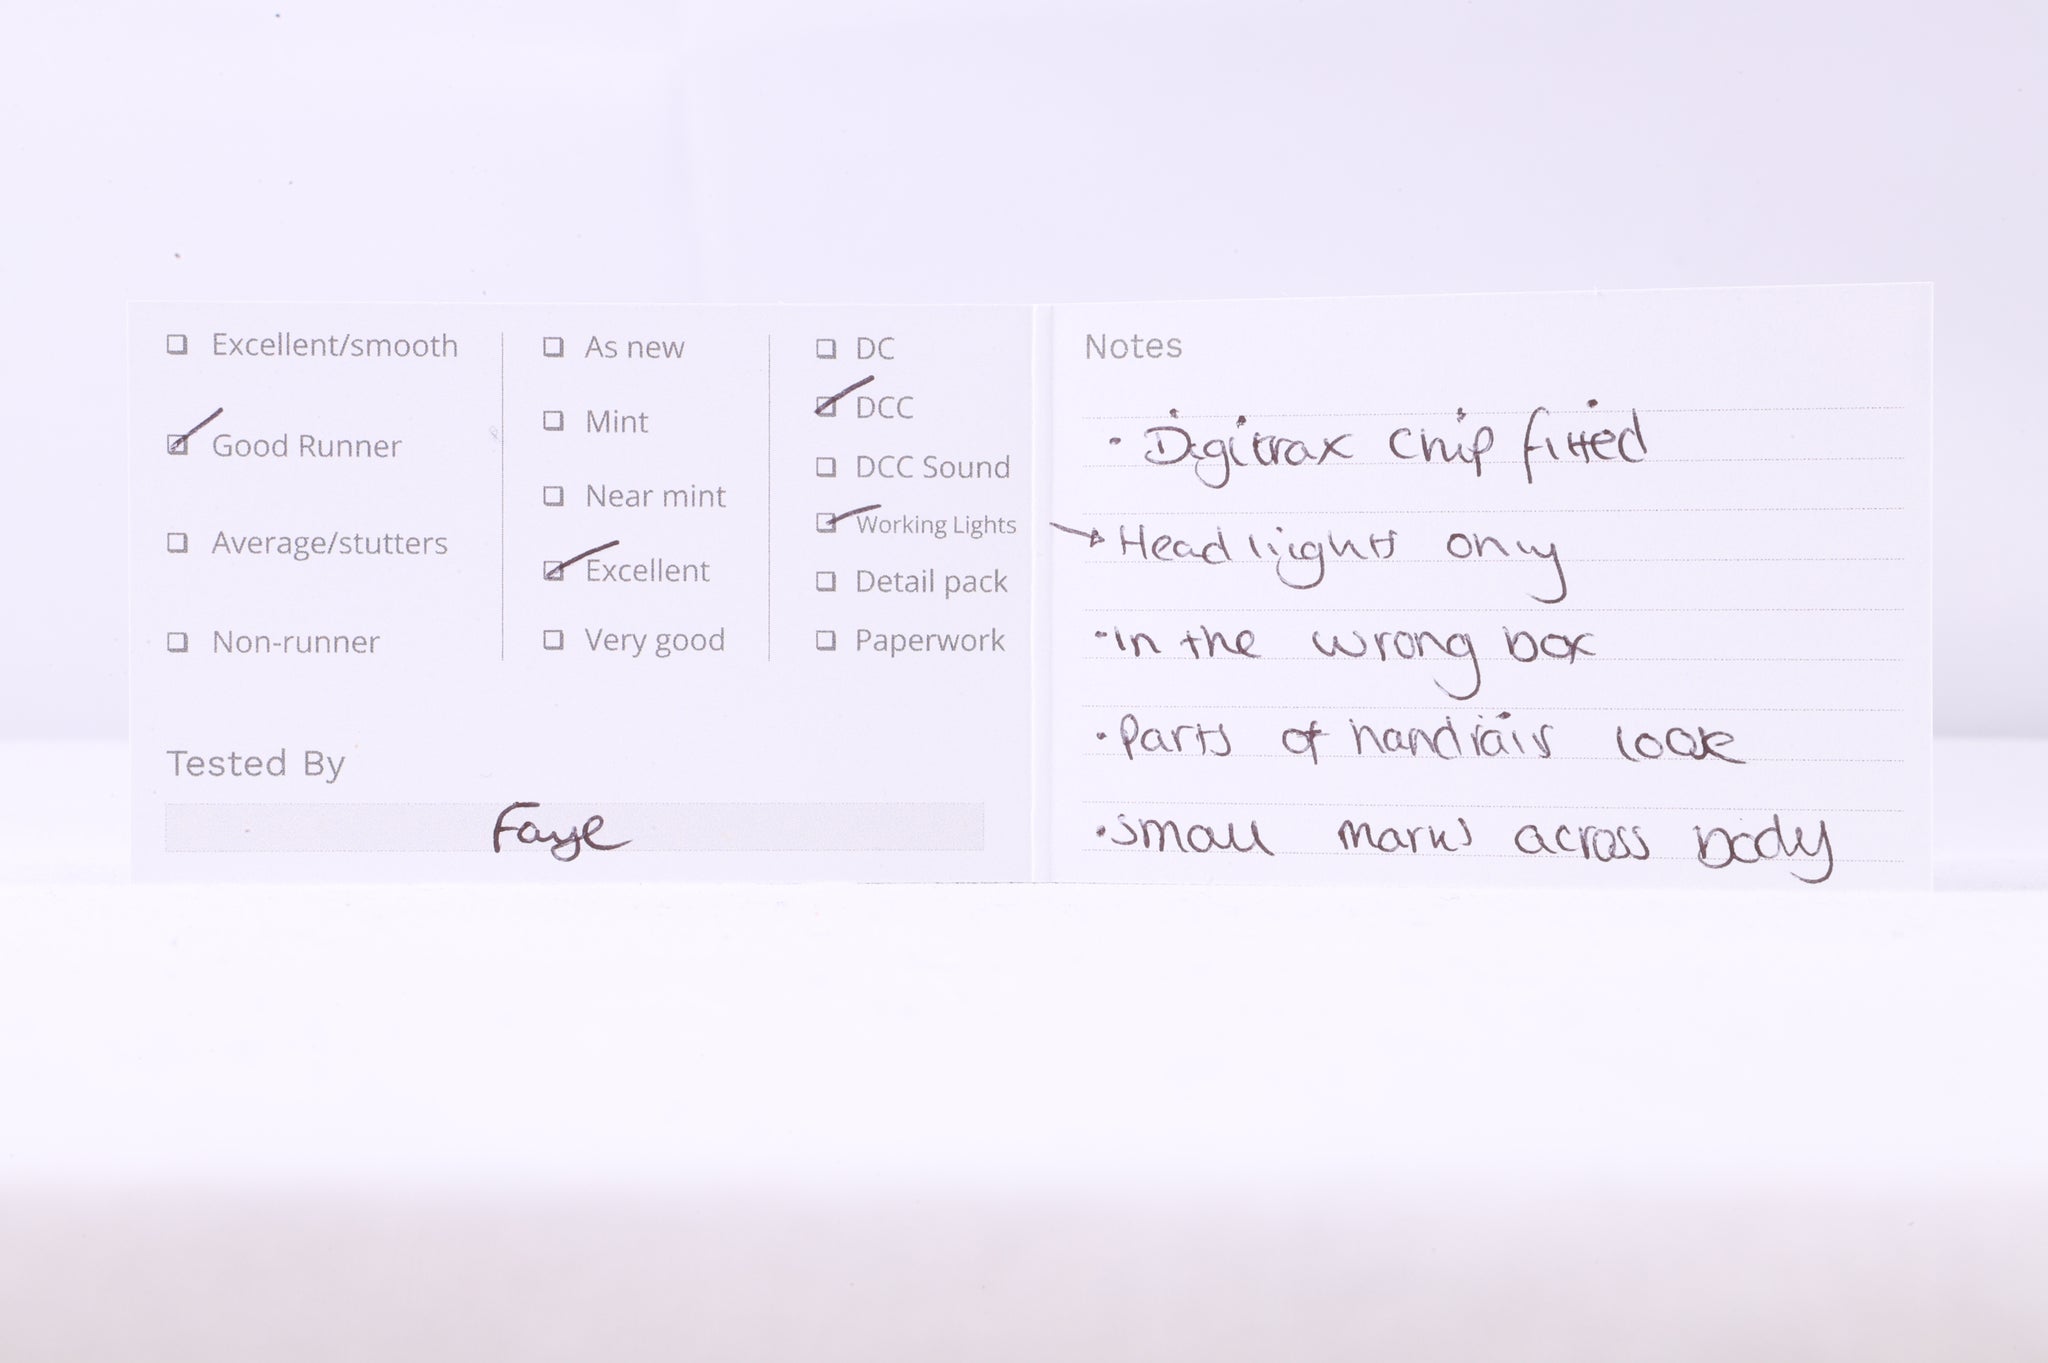 Excellent/smooth
Good Runner
Average/stutters
Non-runner
As new
Mint
Near mint
Excellent
Very good
DC
DCC
DCC Sound
Working Lights
Detail pack
Paperwork
Tested By
Faye
Notes
· Digitrax Chip fitted
→ Headlights only
· in the wrong box
· Parts of handrails loose
· small marks across body